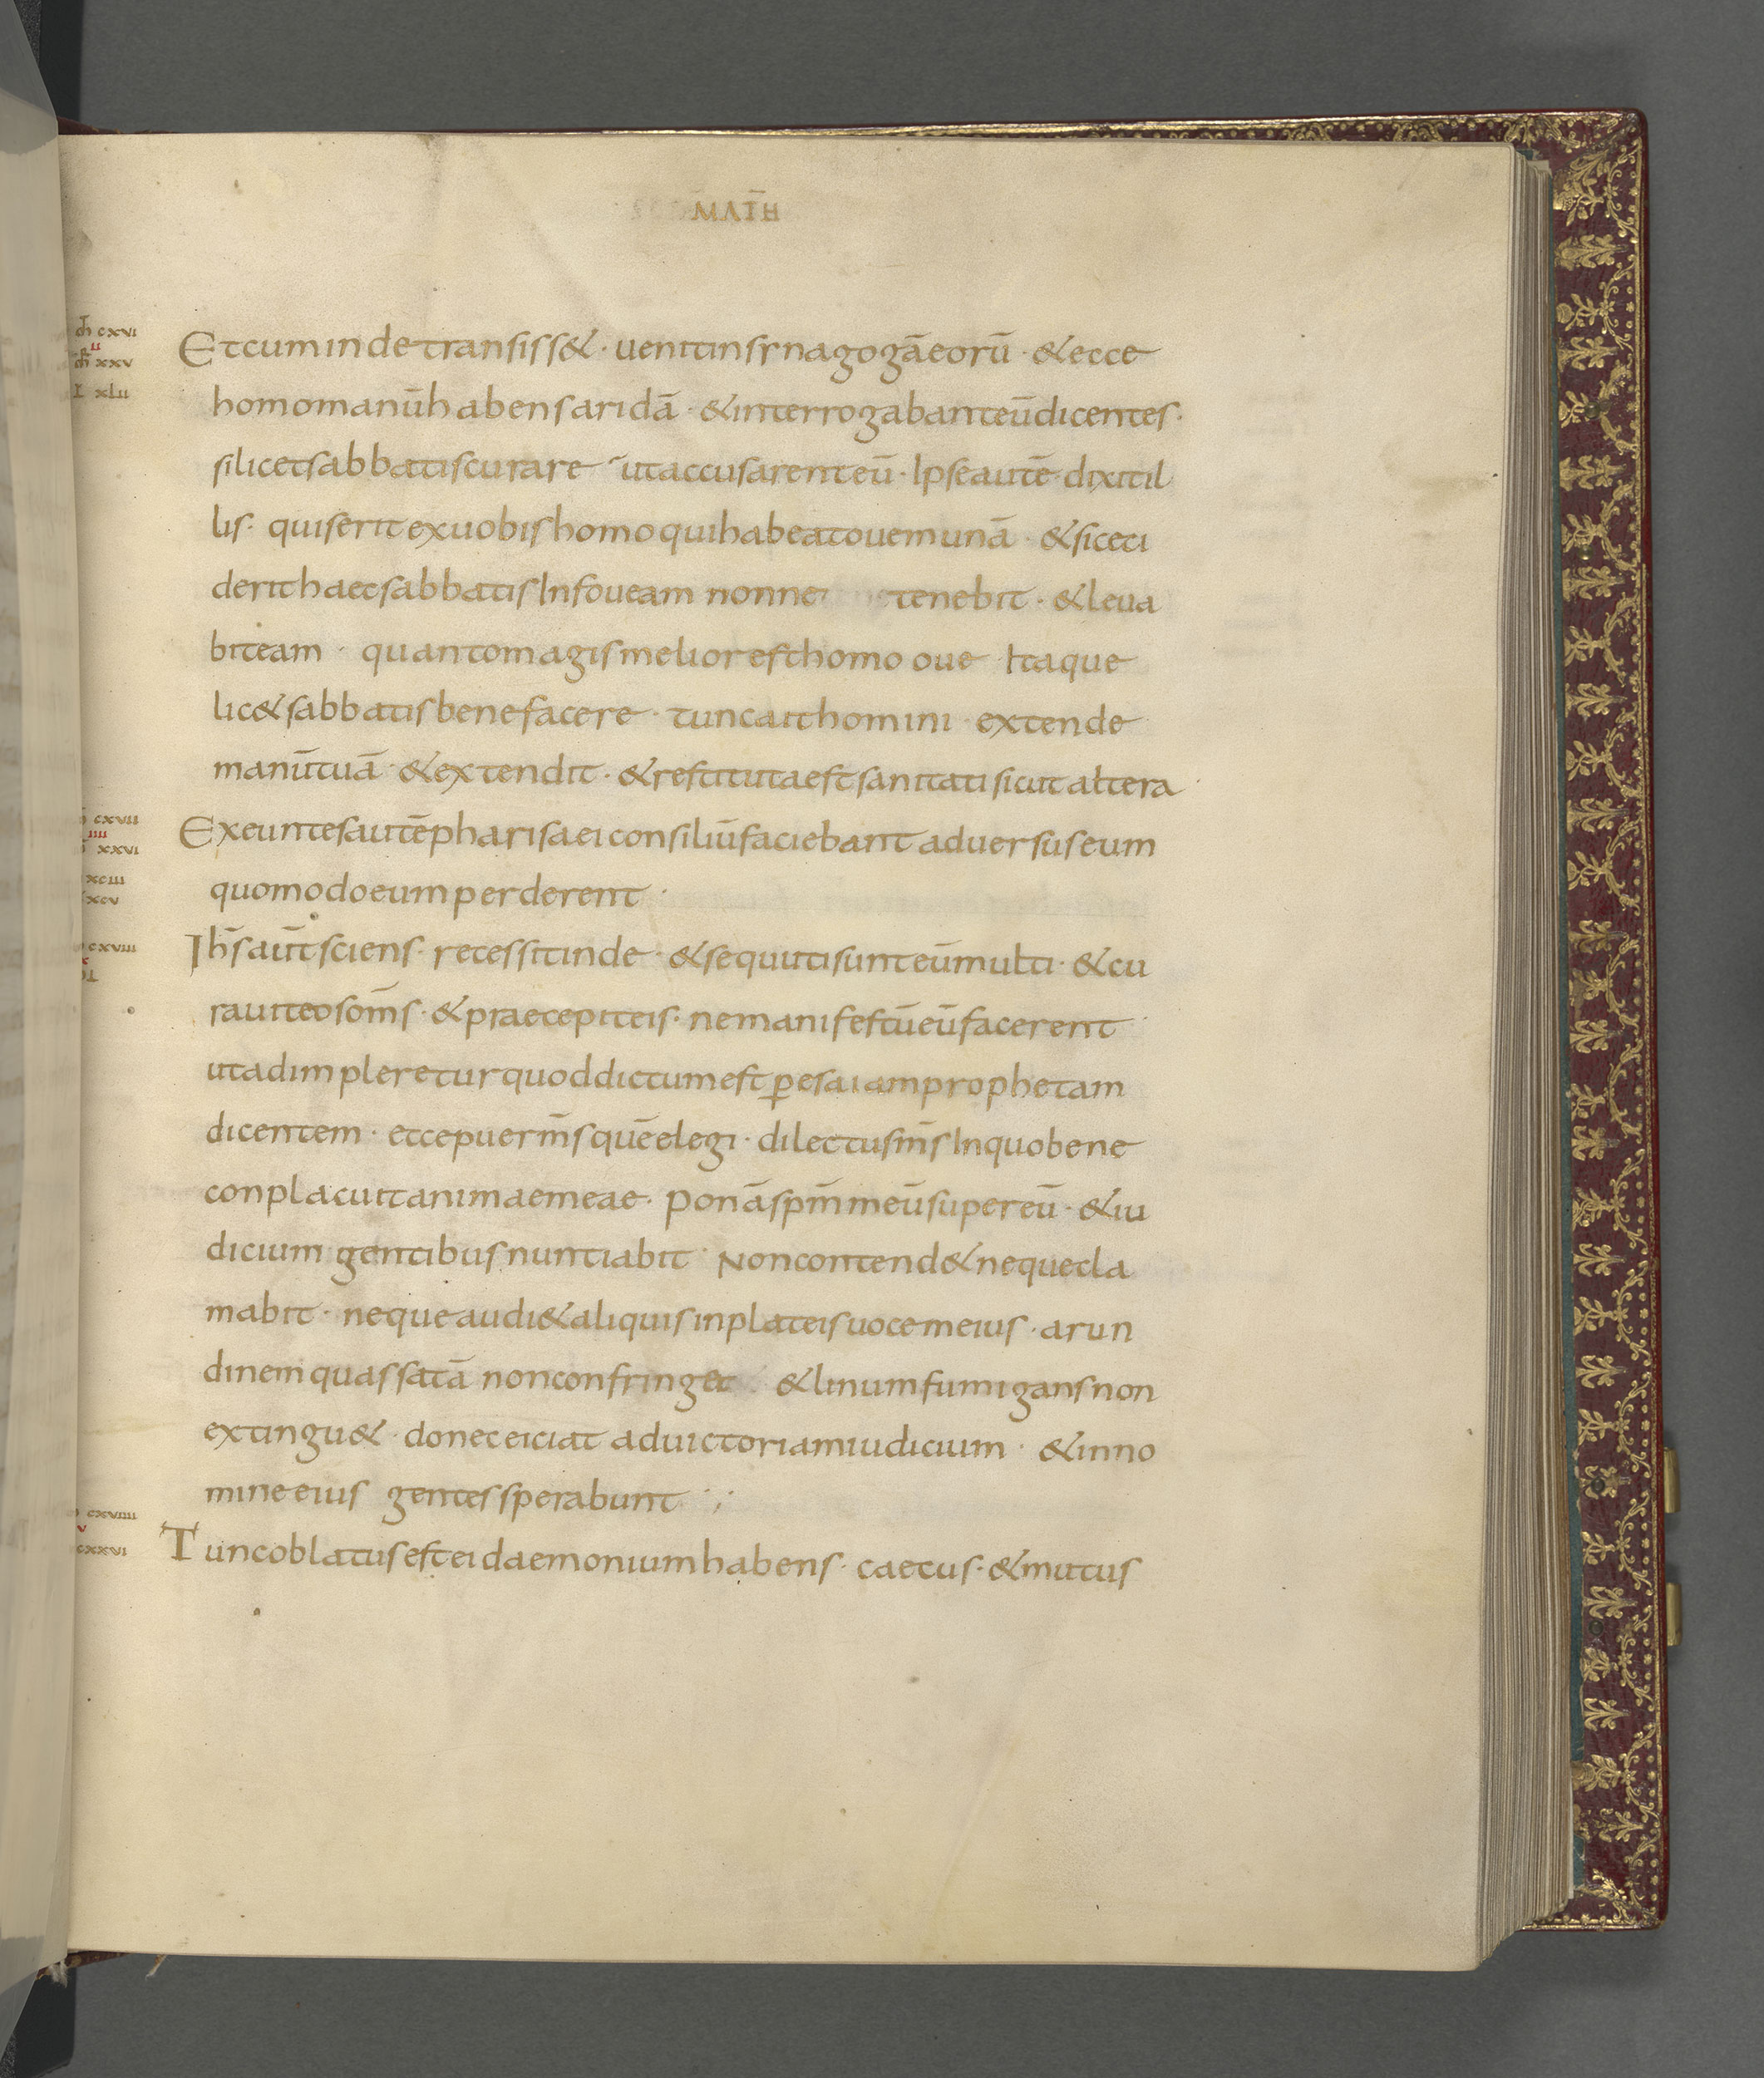 MATH
Etcumindetransiss& · uenitinsynagogāeorū · &ecce
homomanūhabensaridā · &interrogabanteūdicentes ·
silicetsabbatiscurare utaccusarenteū · Ipseautē dixitil
lis · quiseritexuobishomoquihabeatouemunā · &siceci
derithaecsabbatisInfoueam nonne tenebit · &leua
biteam · quantomagismelioresthomo oue Itaque
lic&sabbatisbenefacere · tuncaithomini · extende
manūtuā &extendit · &restitutaestsanitatisicutaltera
Exeuntesautēpharisaeiconsiliūfaciebant aduersuseum
quomodoeumperderent ·
Ihs̄aut̄sciens · recessitinde · &sequutisunteūmulti · &cu
rauiteosom̄s · &praecepiteis · nemanifestūeūfacerent
utadimpleretur quoddictumest ꝑesaiamprophetam
dicentem · eccepuerm̄squēelegi · dilectusm̄sInquobene
conplacuitanimaemeae · ponāspm̄meūsupereū · &iu
dicium gentibusnuntiabit · Noncontend&nequecla
mabit · neque audi&aliquisinplateisuocemeius · arun
dinemquassatā nonconfringet &linumfumigansnon
extingu& · doneceiciat aduictoriamiudicium · &inno
mineeius gentessperabunt
Tuncoblatusesteidaemoniumhabens · caecus · &mutus
cxvi
xxv
xlii
cxvii
iiii
xxvi
xciii
xcv
cxviii
cxviiii
v
cxxvi